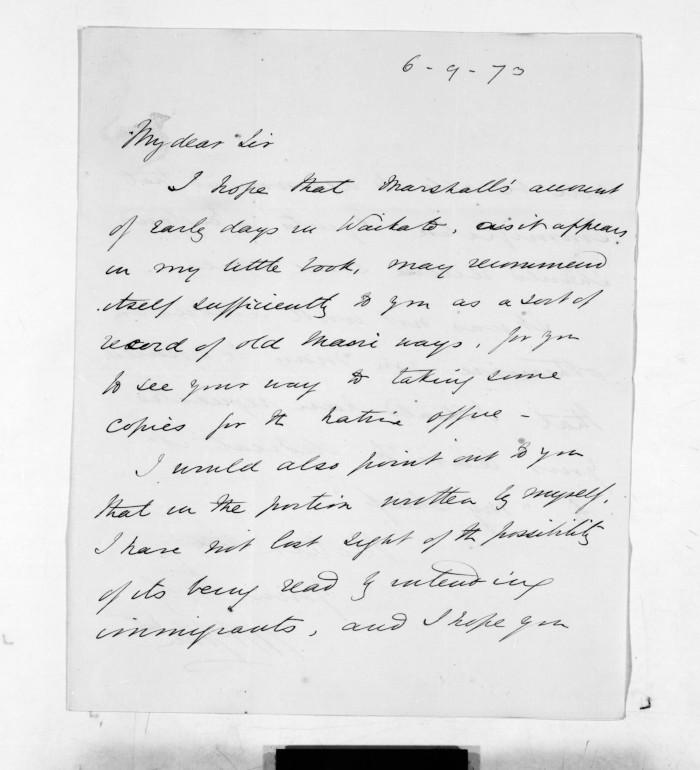 6-9-73
My dear Sir
I hope that Marshall's account
of early days in Waikato, as it appears
in my little book, may recommend
itself sufficiently to you as a sort of
record of old Maori ways, for you
to see your way to taking some
copies for the Native Office -
I would also point out to you
that in the portion written by myself,
I have not lost sight of the possibility
of its being read by intending
immigrants, and I hope you